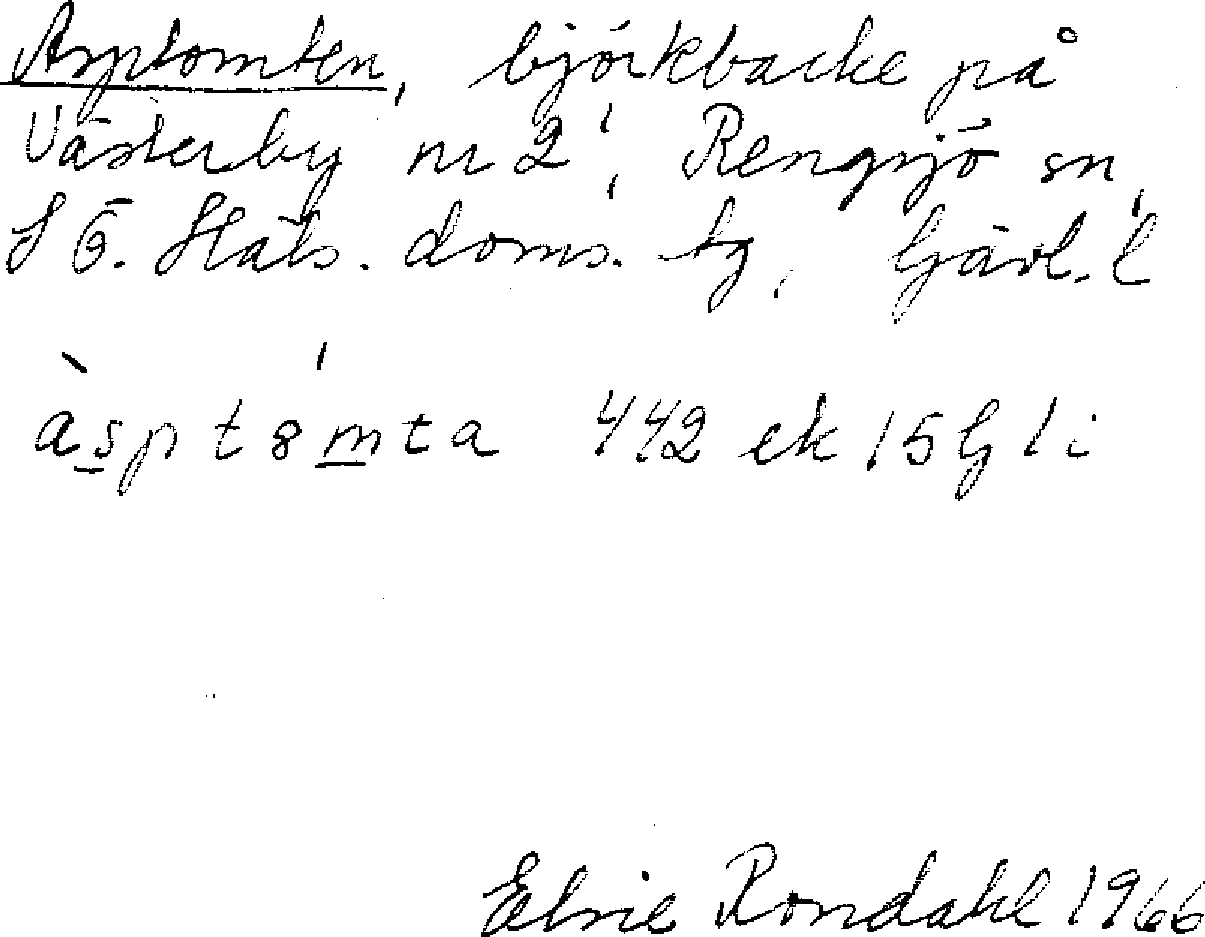 Asptomten, björkbacke på
Västerby nr 2', Rengsjö sn,
S Ö. Häls. doms. tg, Gävl. l
àsptömta 442 ek 15 G 1 i
Elsie Rondahl 1966